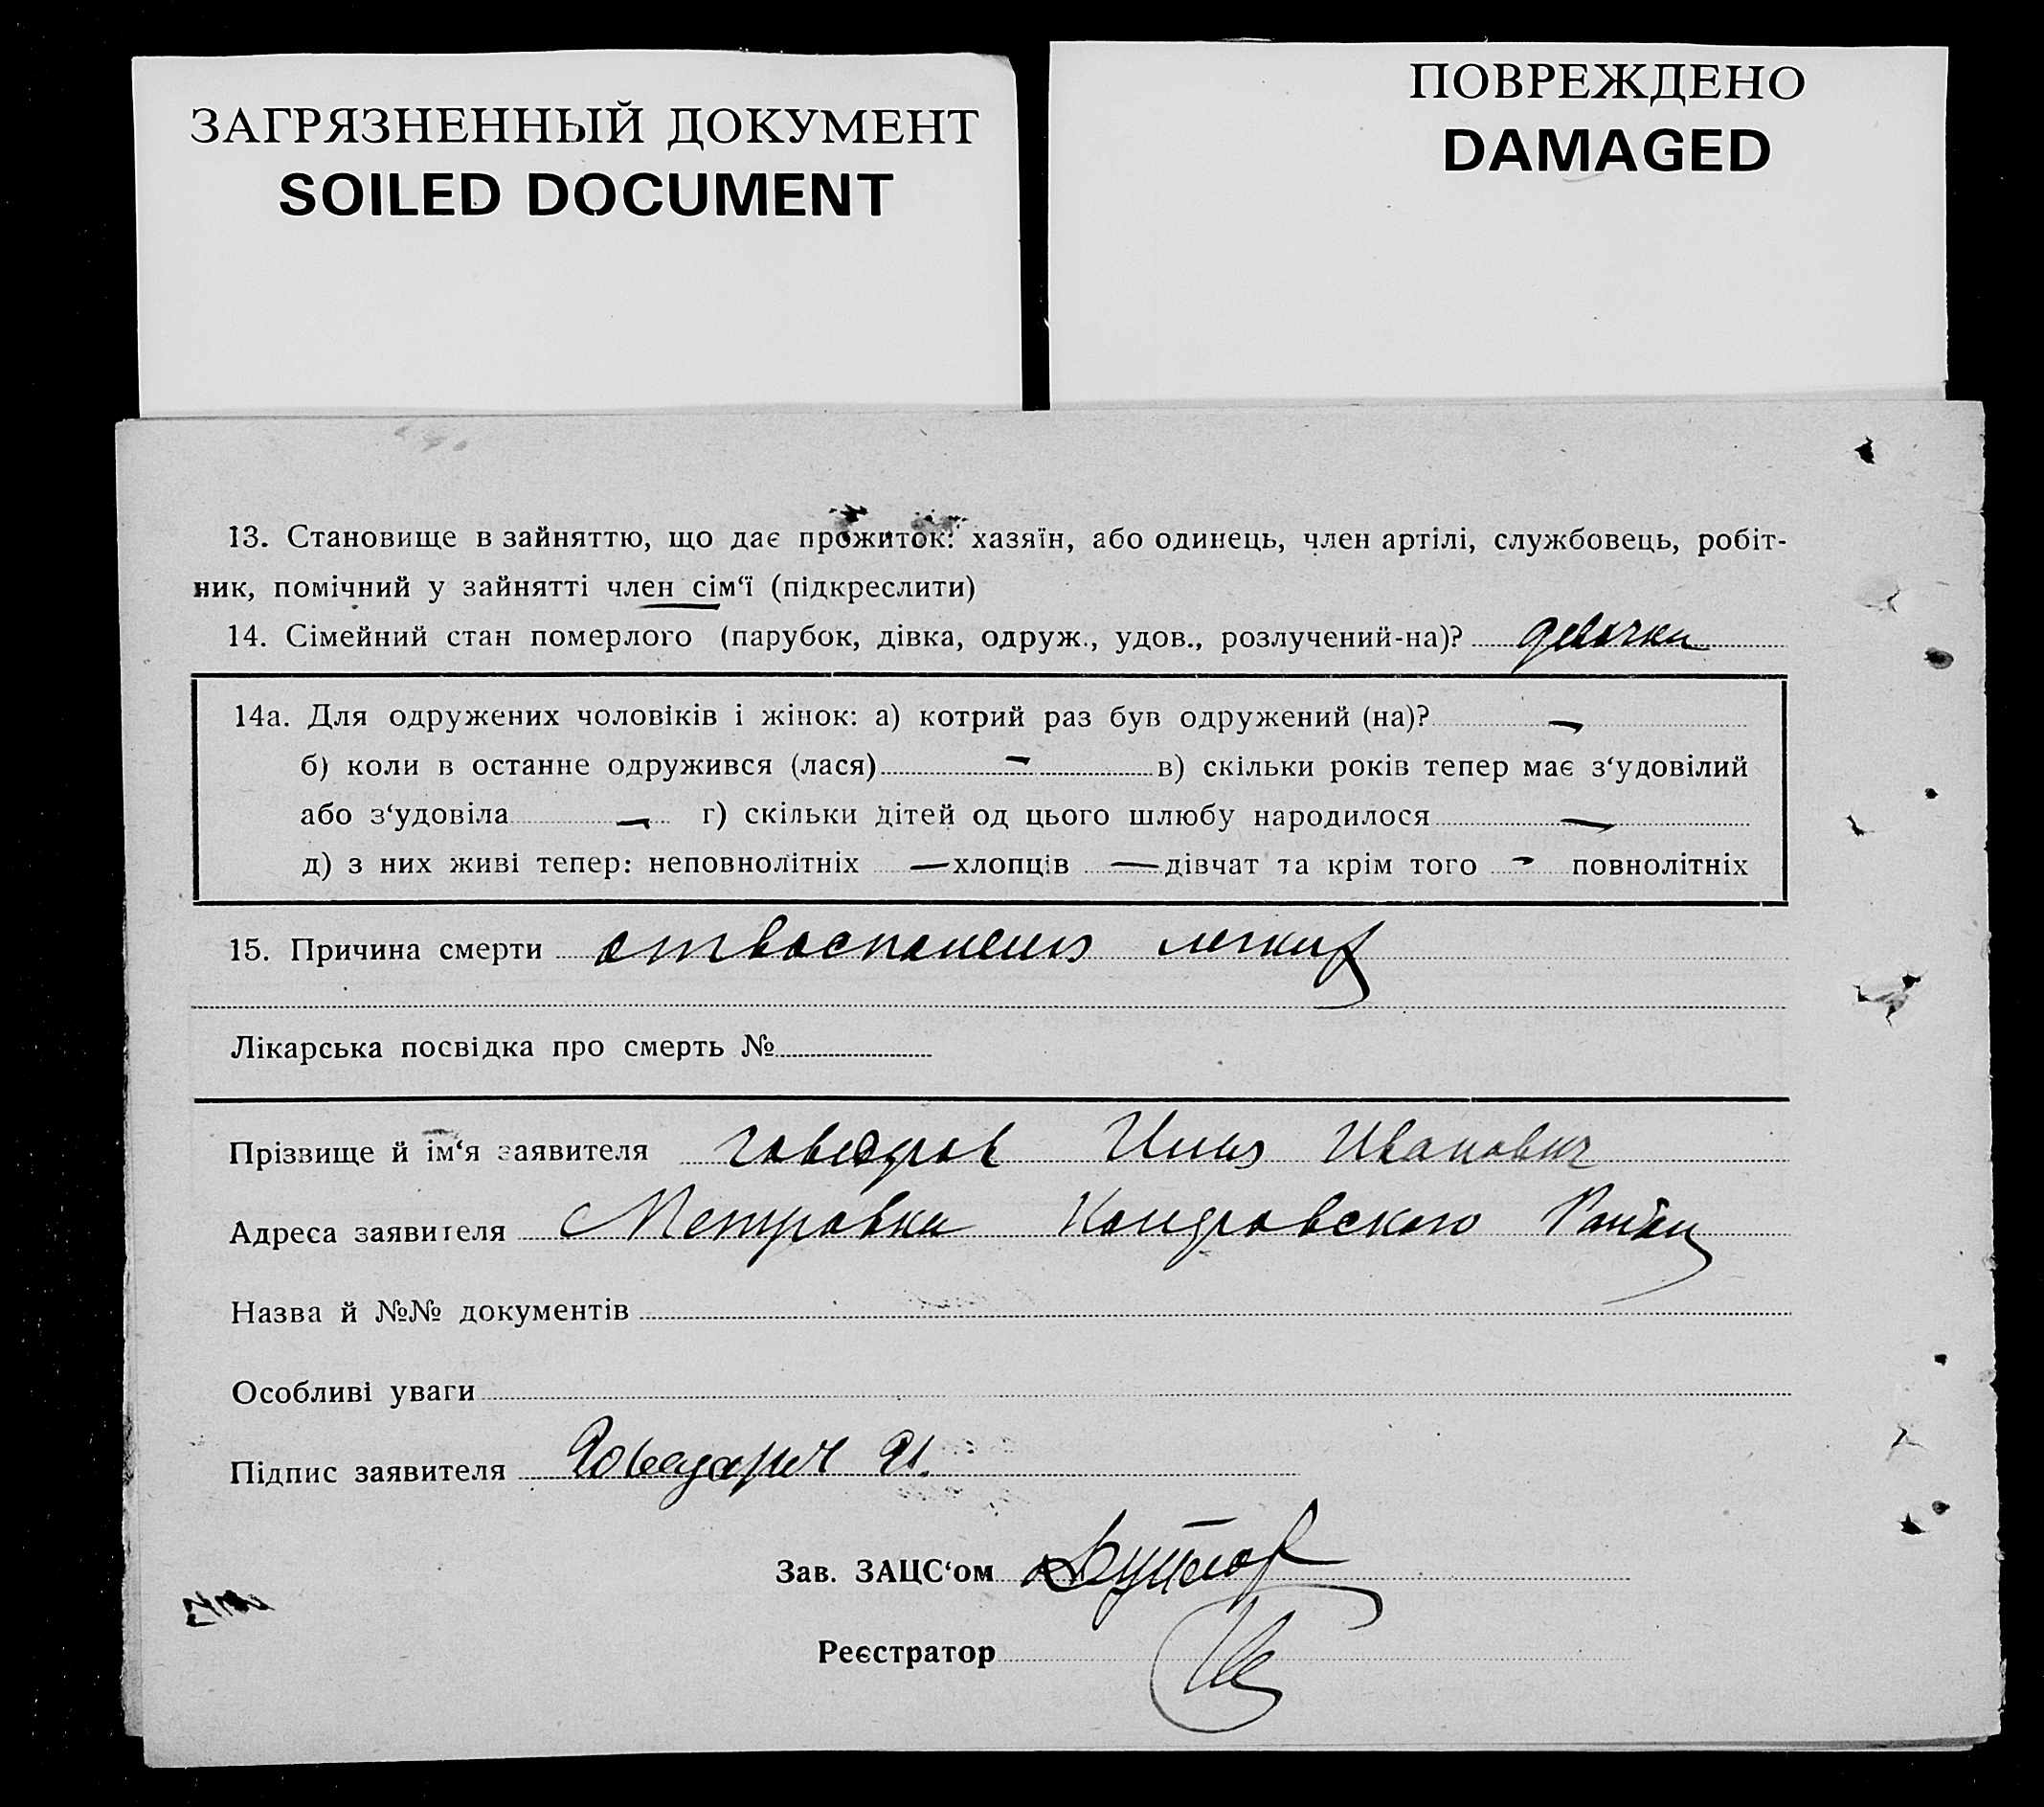 ЗАГРЯЗНЕННЫЙ ДОКУМЕНТ
SOILED DOCUMENT
ПОВРЕЖДЕНО
DAMAGED
13. Становище в зайняттю, що дає прожиток: хазяїн, або одинець, член артілі, службовець, робіт-
ник, помічний у зайнятті член сім‘ї (підкреслити)
14. Сімейний стан померлого (парубок, дівка, одруж., удов., розлучений-на)? девочка
14а. Для одружених чоловіків і жінок: а) котрий раз був одружений (на)? —
б) коли в останнє одружився (лася) — в) скільки років тепер має з‘удовілий
або з‘удовіла — г) скільки дітей од цього шлюбу народилося —
д) з них живі тепер: неповнолітніх — хлопців — дівчат та крім того — повнолітніх
15. Причина смерти от воспаления легких
Лікарська посвідка про смерть №
Прізвище й ім‘я заявителя Иван Иванович
Адреса заявителя Петровка Района
Назва й №№ документів
Особливі уваги
Підпис заявителя
Зав. ЗАЦС‘ом
Реєстратор